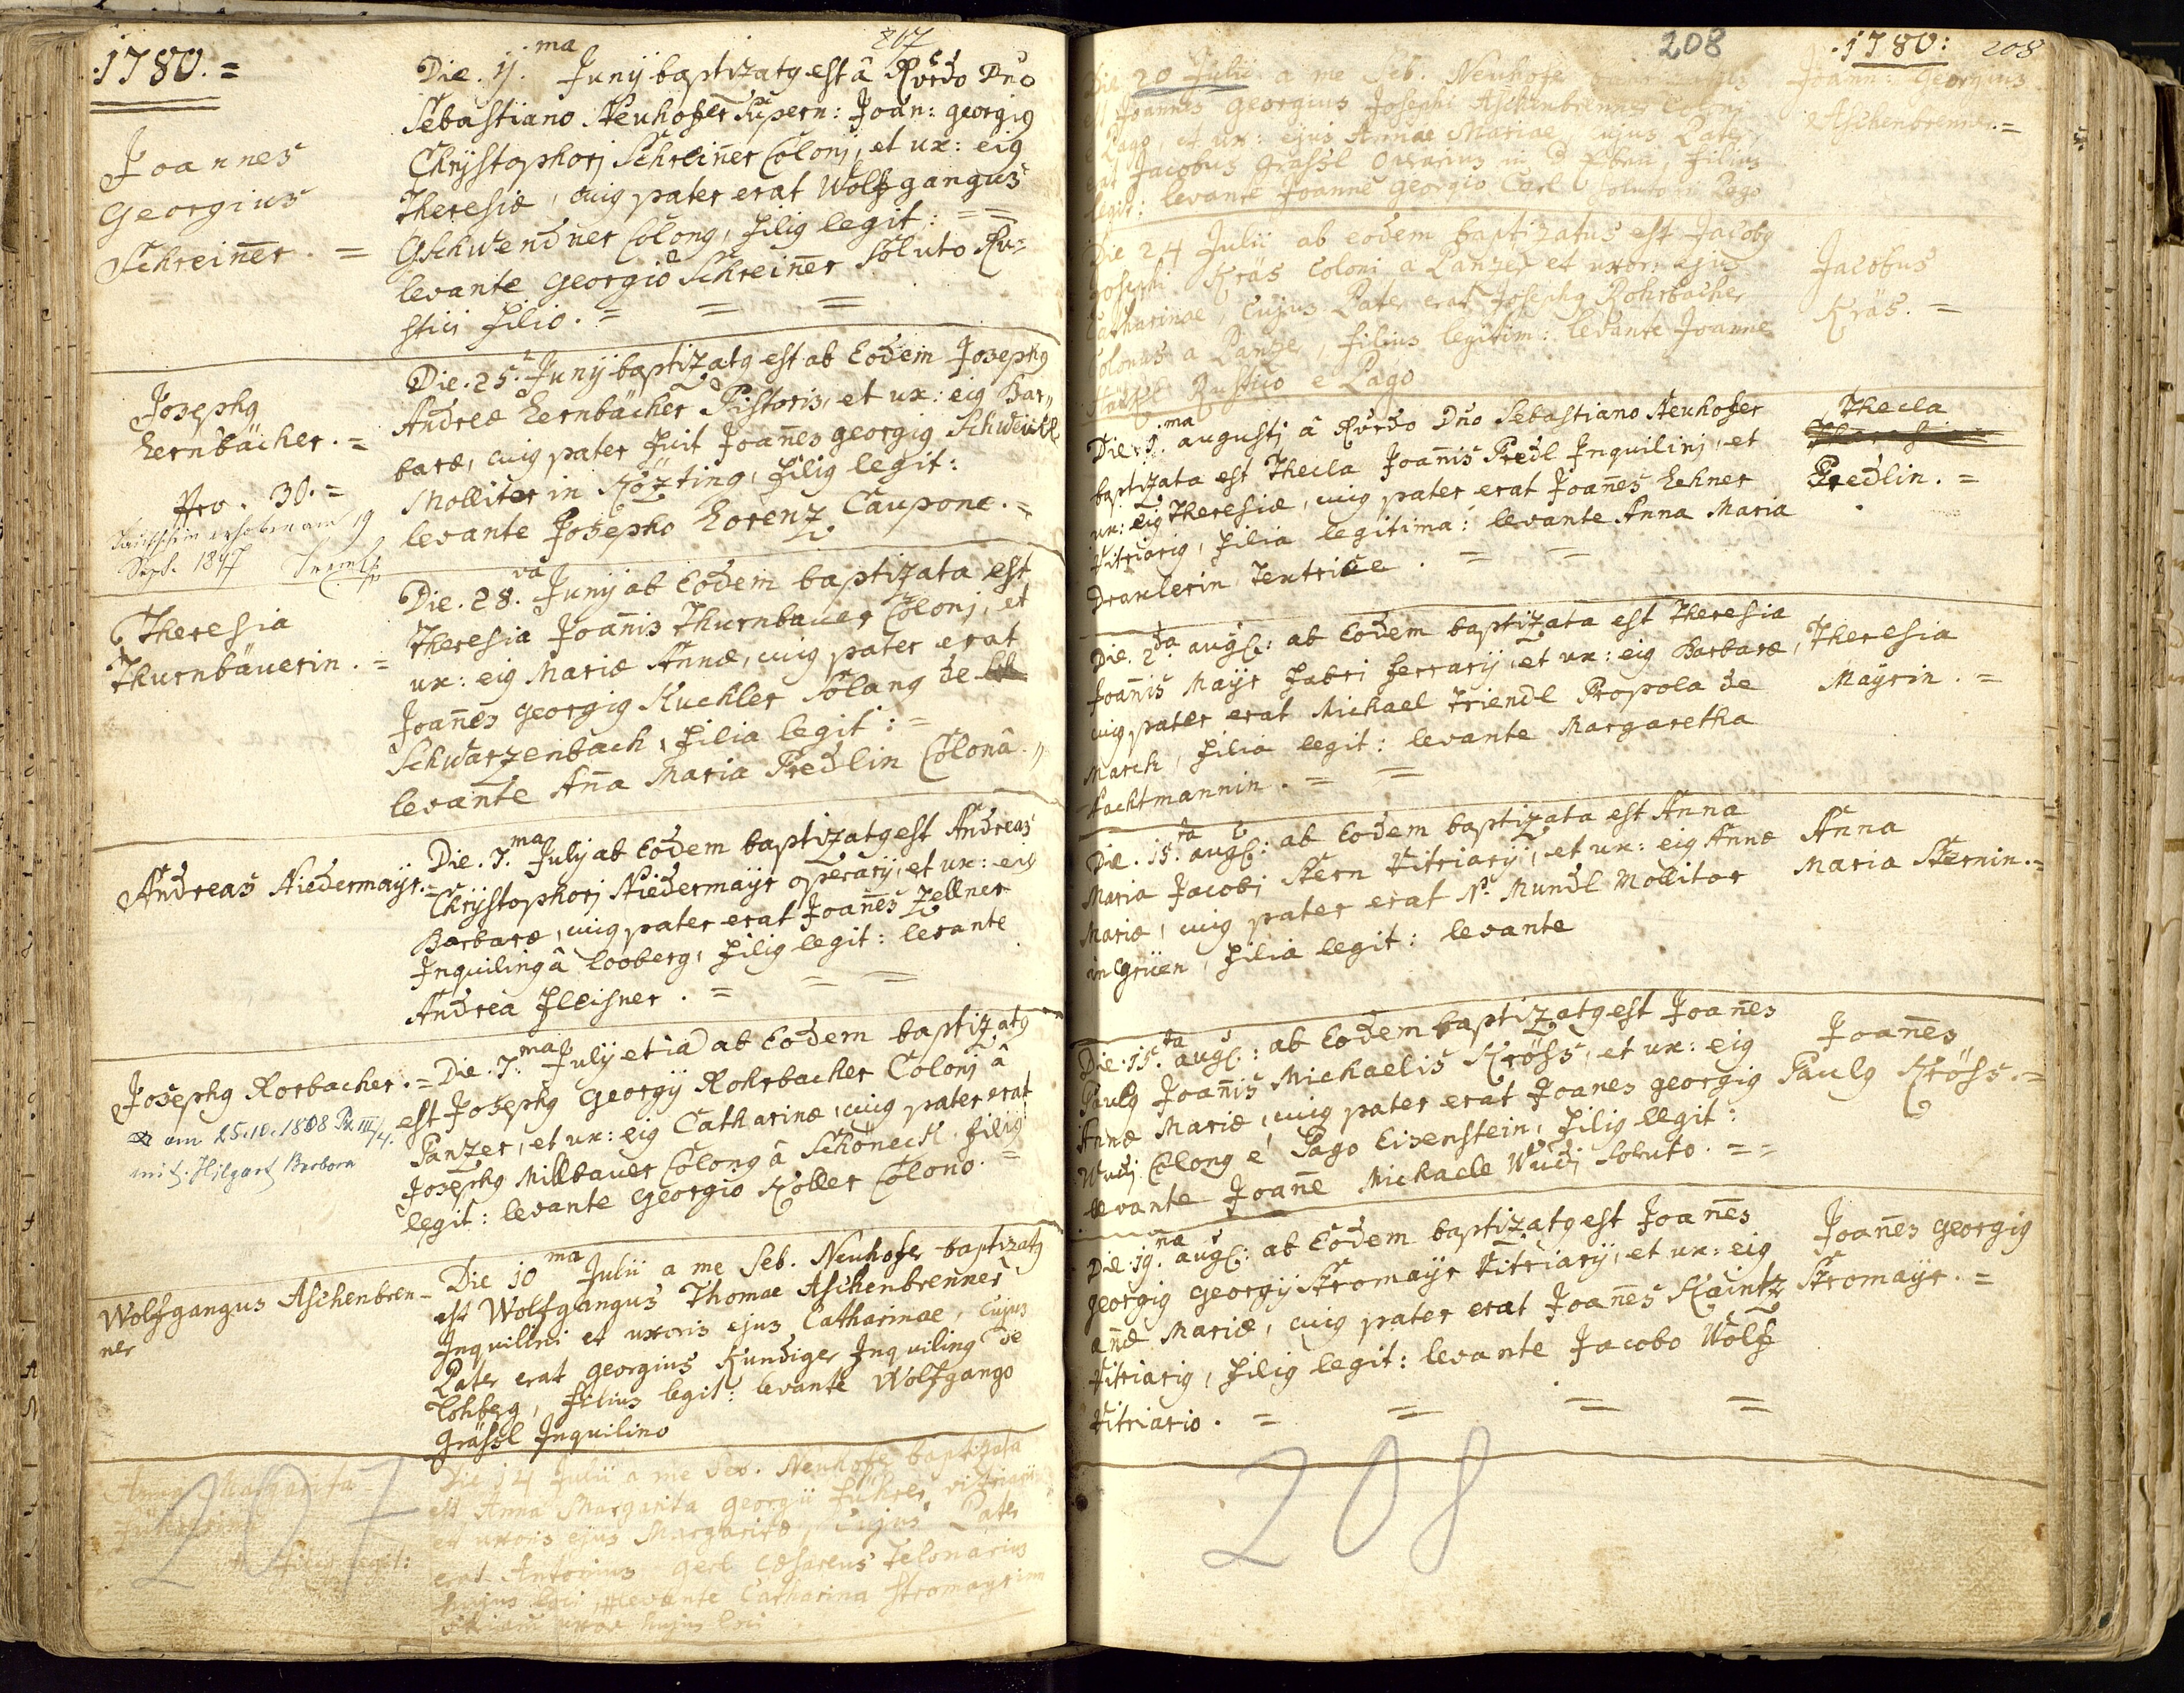 .1780.=
207
Joannes
Georgius
Schreiner. =
Die. 11.ma Junÿ baptizatg est â Rvrdo Dno
Sebastiano Neuhofer Supern: Joan: georgig
Chrÿstophorj Schreiner Colonj, et ux: eig
Theresiæ, cuig pater erat Wolfgangus
Gschwendner Colong, filig legit: ==
levante Georgio Schreiner Soluto Ru=
stici filio. = = =
Josephg
Lernbächer. =
Pro. 30. =
Sept. 1847
Die. 25.a Junÿ baptizatg est ab Eodem Josephg
Andreæ Lernbächer Pistoris, et ux: eig Bar,,
baræ, cuig pater fuit Joanes georgig Schweickl
Molliter in Közting, filig legit:
levante Josepho Lorenz Caupone. =
Theresia
Thurnbäuerin. =
Die. 28.va Junÿ ab Eodem baptizata est
Theresia Joanis Thurnbauer Colonj, et
ux: eig Mariæ Annæ, cuig pater erat
Joanes georgig Kuchler Colang de
Schwarzenbach, filia legit: =
levante Ana Maria Predlin Colonâ.,,
Andreas Niedermaÿr. =
Die. 7.ma Julÿ ab Eodem baptizatg est Andreas
Chrÿstophorj Niedermaÿr operarÿ, et ux: eig
Barbaræ, cuig pater erat Joanes Zellner
Inquiling â Looberg, filig legit: levante
Andrea Fleisner. = = =
Josephg Rorbacher. =
am 25.10.1808 Pr III/4.
mit. Hilgart Barbara
Die. 7.ma Julÿ etiã ab Eodem baptizatg
est Josephg Georgÿ Rohrbacher Colonj â
Panzer, et ux: eig Catharinæ, cuig pater erat
Josephg Millbauer Colong â Schöneck filig
legit: levante Georgio Koller Colono. =
Wolfgangus Aschenbren-
ner
Die 10ma Julii a me Seb. Neuhofer baptizatg
est Wolfgangus Thomae Aschenbrenner
Inquilini et uxoris ejus Catharinae, cujus
Pater erat Georgius Kundiger Inquiling de
Lohberg, filius legit: levante Wolfgango
Grässl Inquilino
Anna Margarita
Führerin
filia legit:
Die 14 Julii a me Seb. Neuhofer baptizata
est Anna Margarita Georgii Führer vitriarii
et uxoris ejus Margaritæ, Cujus Pater
erat Antonius Gerl Cæsareus Telonarius
hujus loci, levante Catharina Stromayrinn
uxor hujus loci
207
208
.1780: 208
Die 20 Julii a me Seb. Neuhofer
est Joannes Georgius Josephi Aschenbrenner Coloni
e Pago, et ux: ejus Annae Mariae cujus Pater
erat Jacobus Grassl Operarius in filius
legit: levante Joanne Georgio Carl soluto e Pago
Joann: Georgius
Aschenbrenner. =
Die 24 Julii ab eodem baptizatus est Jacobg
Josephi Kräs Coloni a Panzer et uxor: ejus
Catharinae, Cujus Pater erat Josephg Rohrbacher
Colonus a Panzer, filius legitim: levante Joanne
Rustico e Pago
Jacobus
Kräs. =
Die 1.ma augustj â Rvrdo Dno Sebastiano Neuhofer
baptizata est Thecla Joanis Predl Inquilinj, et
ux: eig Theresiæ, cuig pater erat Joanes Lehner
Vitriarig, filia legitima: levante Anna Maria
Draxlerin Textrice. = =
Thecla
Theresia
Predlin. =
Die. 2.da aug(: ab Eodem baptizata est Theresia
Joanis Maÿr fabri ferrarÿ, et ux: eig Barbaræ,
cuig pater erat Michael Friendl Propola de
March, filia legit: levante Margaretha
Pachtmannin. = =
Theresia
Maÿrin. =
Die. 15.ta aug(: ab Eodem baptizata est Anna
Maria Jacobj Stern Vitriarÿ, et ux: eig Annæ
Mariæ, cuig pater erat N. Mundl Mollitor
in Grüen, filia legit: levante
Anna
Maria Sternin. =
Die. 15.ta aug(: ab Eodem baptizatg est Joanes
Paulg Joanis Michaelis Kröss, et ux: eig
Annæ Mariæ, cuig pater erat Joanes georgig
Wudj Colong e Pago Eisenstein, filig legit:
levante Joane Michaele Wudj Soluto. = =
Joanes
Paulg Kröss. =
Die. 19.na aug(: ab Eodem baptizatg est Joanes
georgig georgÿ Stromaÿr Vitriarÿ, et ux: eig
anæ Mariæ, cuig pater erat Joanes Kaintz
Vitriarig, filig legit: levante Jacobo Wolf
Vitriario. = = = =
Joanes georgig
Stromaÿr. =
208